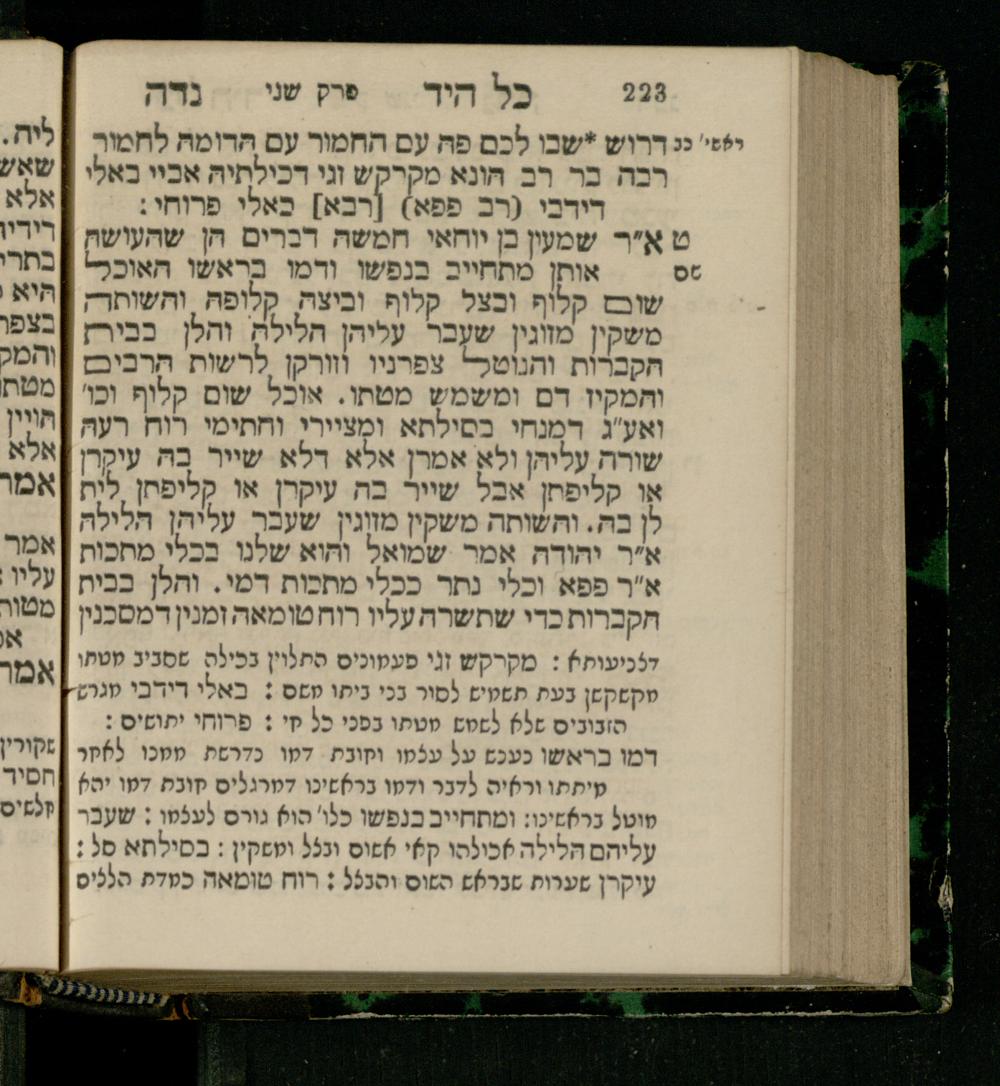 223 כל היד פרק שני נדה
ראשי' כב דרוש *שבו לכם פה עם החמור עם הדומה לחמור
רבה בר רב הונא מקרקש זגי דכילתיה אביי באלי
דידבי (רב פפא) [רבא] באלי פרוחי :
ט א״ר שמעון בן יוחאי חמשה דברים הן שהעושה
שם אותן מתחייב בנפשו ודמו בראשו האוכל
שום קלוף ובצל קלוף וביצה קלופה והשותה
משקין מזוגין שעבר עליהן הלילה והלן בבית
הקברות והנוטל צפרניו וזורקן לרשות הרבים
והמקיז דם ומשמש מטתו. אוכל שום קלוף וכו'
ואע״ג דמנחי בסילתא ומציירי וחתימי רוח רעה
שורה עליהן ולא אמרן אלא דלא שייר בה עיקרן
או קליפתן אבל שייר בה עיקרן או קליפתן לית
לן בה. והשותה משקין מזוגין שעבר עליהן הלילה
א״ר יהודה אמר שמואל והוא שלנו בכלי מתכות
א״ר פפא וכלי נתר ככלי מתכות דמי. והלן בבית
הקברות כדי שתשרה עליו רוח טומאה זמנין דמסכנין
: מקרקש זגי פעמונים התלוין בכילה שסביב מטתו
מקשקשן בעת תשמיש לסור בני ביתו משם : באלי דידבי מגרש
הזבובים שלא לשמש מטתו בפני כל חי : פרוחי יתושים :
דמו בראשו כעכש על עצמו וקובת דמו נדרשת ממנו לאחר
מיתתו וראיה לדבר ודמו בראשינו דמרגלים חובת דמו יהא
מוטל בראשינו: ומתחייב בנפשו כלו' הוא גורם לעצמו : שעבר
עליהם הלילה אכולהו קאי אשום ובצל ומשקין : בסילתא סל :
עיקרן שערות שבראש השום והבצל : רוח טומאה כמדת הללים
ליה.
שאש
אלא
רידיה
בתרי
היא
בצפר
והמק
מטתו
הויין
אלא
אמר
אמר
עליו
מטות
אמר
שקורין
חסיד